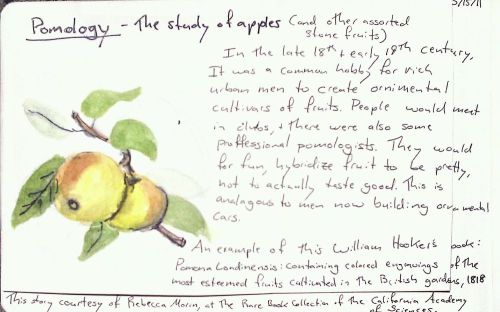 5/15/11
Pomology - The study of apples (and other assorted
stone fruits)
In the late 18th + early 19th century,
It was a common hobby for rich
urban men to create ornimental
cultivars of fruits. People would meet
in clubs, + there were also some
proffessional pomologists. They would
for fun, hybridize fruit to be pretty,
not to actually taste good. This is
analagous to men now building ornamental
cars.
An example of this William Hooker's book:
Pomona Londinensis: containing colored engravings of the
most esteemed fruits cultivated in the British gardens, 1818
This story courtesy of Rebecca Morin, at The Rare Book Collection of the California Academy
of Sciences.